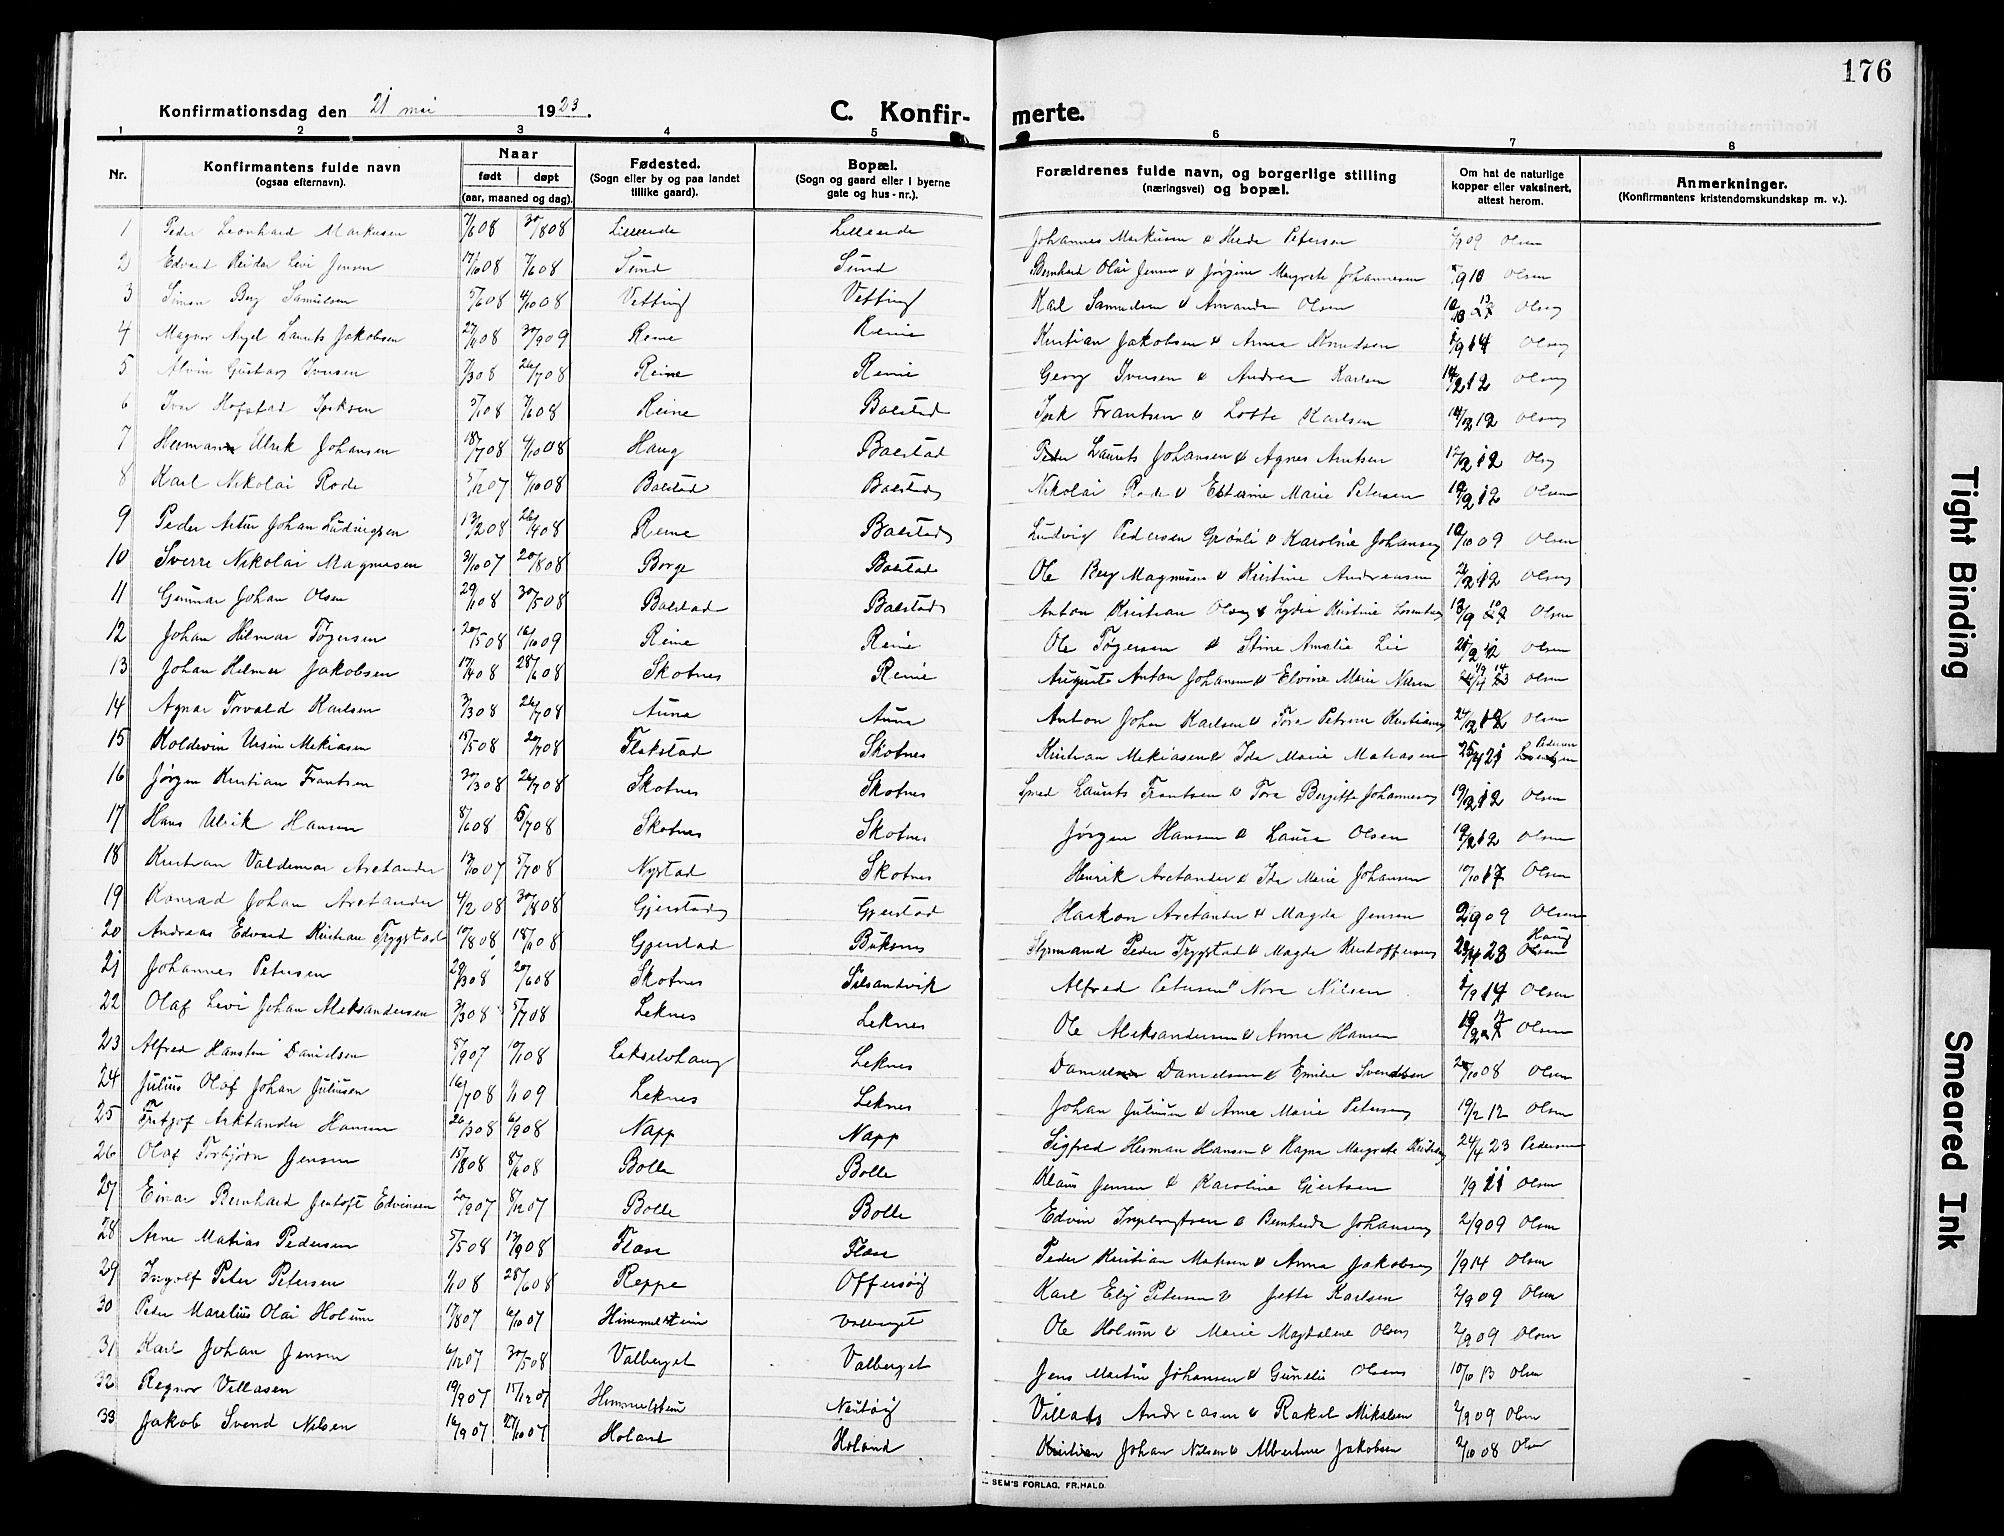 176
Konfirmationsdag den 21 mai 1923.
C. Konfir-
merte.
1 2 3 4 5 6 7 8
Nr.
Konfirmantens fulde navn
(ogsaa efternavn).
Naar
født døpt
(aar, maaned og dag).
Fødested.
(Sogn eller by og paa landet
tillike gaard).
Bopæl.
(Sogn og gaard eller i byerne
gate og hus-nr.).
Forældrenes fulde navn, og borgerlige stilling
(næringsvei) og bopæl.
Om hat de naturlige
kopper eller vaksinert,
attest herom.
Anmerkninger.
(Konfirmantens kristendomskundskap m. v.).
1 Peder Leonhard Markusen Lilleeide Lilleeide Johannes Markusen & Petersen Olsen
2 Edvard Reidar Levi Jensen 7/6 08 Sund Sund Bernhard Olai Jensen & Jørgine Margrete Johannesen Olsen
3 Simon Berg Samuelsen 4/10 08 Vetting Vetting Karl Samuelsen & Amanda Olsen Olsen
4 Magnor Laurits Jakobsen 30/9 09 Reine Reine Kristian Jakobsen & Anna Knudsen Olsen
5 Alvin Gustav Iversen 26/7 08 Reine Reine Georg Iversen & Andrea Karlsen 14/2 12 Olsen
6 Ivar Hofstad 7/6 08 Reine Balstad Frantsen & Lotte Karlsen 14/2 12 Olsen
7 Hermann Ulrik Johansen 18/7 08 4/10 08 Haug Balstad Peder Laurits Johansen & Agnes Arntsen 12 Olsen
8 Karl Nikolai Rode 4/10 08 Balstad Balstad Nikolai Rode & Marie Petersen 12 Olsen
9 Peder Artur Johan Ludvigsen 13/2 08 26/4 08 Reine Balstad Ludvig Pedersen & Karoline Johansen 09 Olsen
10 Sverre Nikolai Magnusen 31/10 07 20/8 08 Borge Balstad Ole Berg Magnusen & Kristine Andreassen 12 Olsen
11 Gunnar Johan Olsen 29/1 08 30/5 08 Balstad Balstad Anton Kristian Olsen & Lydia Kristine Olsen
12 Johan Hilmar Tøgersen 20/5 08 16/10 09 Reine Reine Ole Tøgersen & Stine Amalie Lie 12 Olsen
13 Johan Helmer Jakobsen 17/4 08 28/6 08 Skotnes Reine August Anton Johansen & Elvine Marie Nilsen Olsen
14 Agnar Torvald Karlsen 3/3 08 26/7 08 Auna Auna Anton Johan Karlsen & Tora Petrine Kristiansen 12 Olsen
15 Koldevin Ursin Mekiasen 15/5 08 20/7 08 Flakstad Skotnes Kristian Mekiasen & Ida Marie Matiasen 25/4 21 Pedersen
16 Jørgen Kristian Frantsen 30/3 08 26/7 08 Skotnes Skotnes Smed Laurits Frantsen & Tora Bergitte Johannesen 19/2 12 Olsen
17 Hans Ulrik Hansen 8/6 08 5/7 08 Skotnes Skotnes Jørgen Hansen & Laura Olsen 19/2 12 Olsen
18 Kristian Valdemar Arctander 13/10 07 5/7 08 Nystad Skotnes Henrik Arctander & Ida Marie Johansen Olsen
19 Konrad Johan Arctander 4/2 08 30/8 08 Gjerstad Gjerstad Haakon Arctander & Magda Jensen 2/9 09 Olsen
20 Andreas Edvard Kristian Trygstad Gjerstad Buksnes Styrmand Peder Trygstad & Magda Kristoffersen 23 Haug
21 Johannes Petersen 29/3 08 20/6 08 Skotnes Silsandvik Alfred Petersen Nora Nilsen 14 Olsen
22 Olaf Levi Johan Aleksandersen 31/3 08 5/7 08 Leknes Leknes Ole Aleksandersen & Anna Hansen Olsen
23 Alfred Hanstin Danielsen 8/9 07 Leknes Daniel Danielsen & Emilie Svendsen 08 Olsen
24 Julius Olaf Johan Juliusen 16/7 08 Leknes Leknes Johan Juliusen & Anna Marie Petersen 19/2 12 Olsen
25 Fritjof Arktander Hansen 26/3 08 6/9 08 Napp Napp Sigfred Herman Hansen & Ragna Margrete 24/4 23 Pedersen
26 Olaf Torbjørn Jensen 8/6 08 Bolle Bolle Klaus Jensen & Karoline Gjertsen 1/9 11 Olsen
27 Einar Bernhard Jentoft Edvinsen 20/9 07 8/12 07 Bolle Bolle Edvin Ingebrigtsen & Bernharda Johansen 2/9 09 Olsen
28 Arne Matias Pedersen 5/5 08 13/9 08 Flase Flase Peder Kristian Matsen & Anna Jakobsen 1/9 14 Olsen
29 Ingolf Peter Petersen 28/6 08 Reppe Offersøy Karl Petersen & Jette Karlsen 2/9 09 Olsen
30 Peder Marelius Olai Holum 17/8 07 6/10 07 Himmelstein Valberget Ole Holum & Marie Magdalene Olsen 2/9 09 Olsen
31 Karl Johan Jensen 6/12 07 30/5 08 Valberget Valberget Jens Martin Johansen & Gunelie Olsen 10/6 13 Olsen
32 Regnor Villasen 19/9 07 15/12 07 Himmelstein Nautøy Villads Andreasen & Rakel Mikalsen 2/9 09 Olsen
33 Jakob Svend Nilsen 16/9 07 27/10 07 Holand Holand Kristian Johan Nilsen & Albertine Jakobsen 2/10 08 Olsen
SEM'S FORLAG, FR.HALD
Tight Binding
Smeared Ink